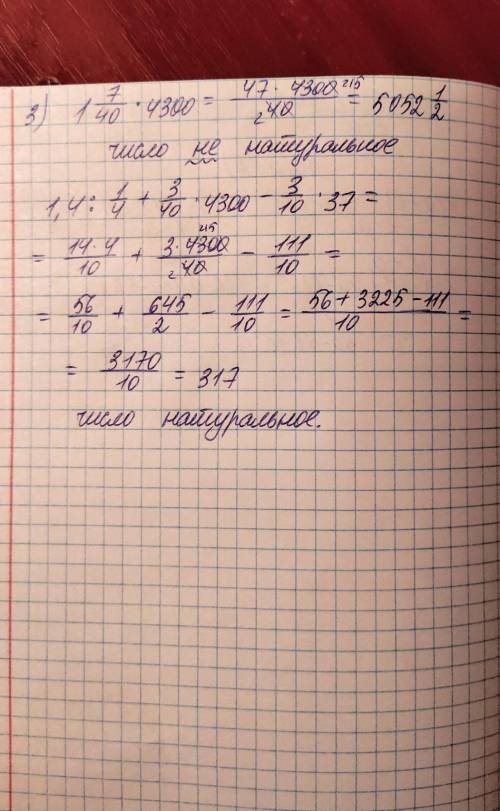 3) 1 7/40 · 4300 = 47 · 4300 215 / 2 40 = 5052 1/2
число не натуральное
1,4 : 1/4 + 3/40 · 4300 - 3/10 · 37 =
= 14·4/10 + 3·4300 215 / 2 40 - 111/10 =
= 56/10 + 645/2 - 111/10 = 56 + 3225 - 111 / 10 =
= 3170/10 = 317
число натуральное.